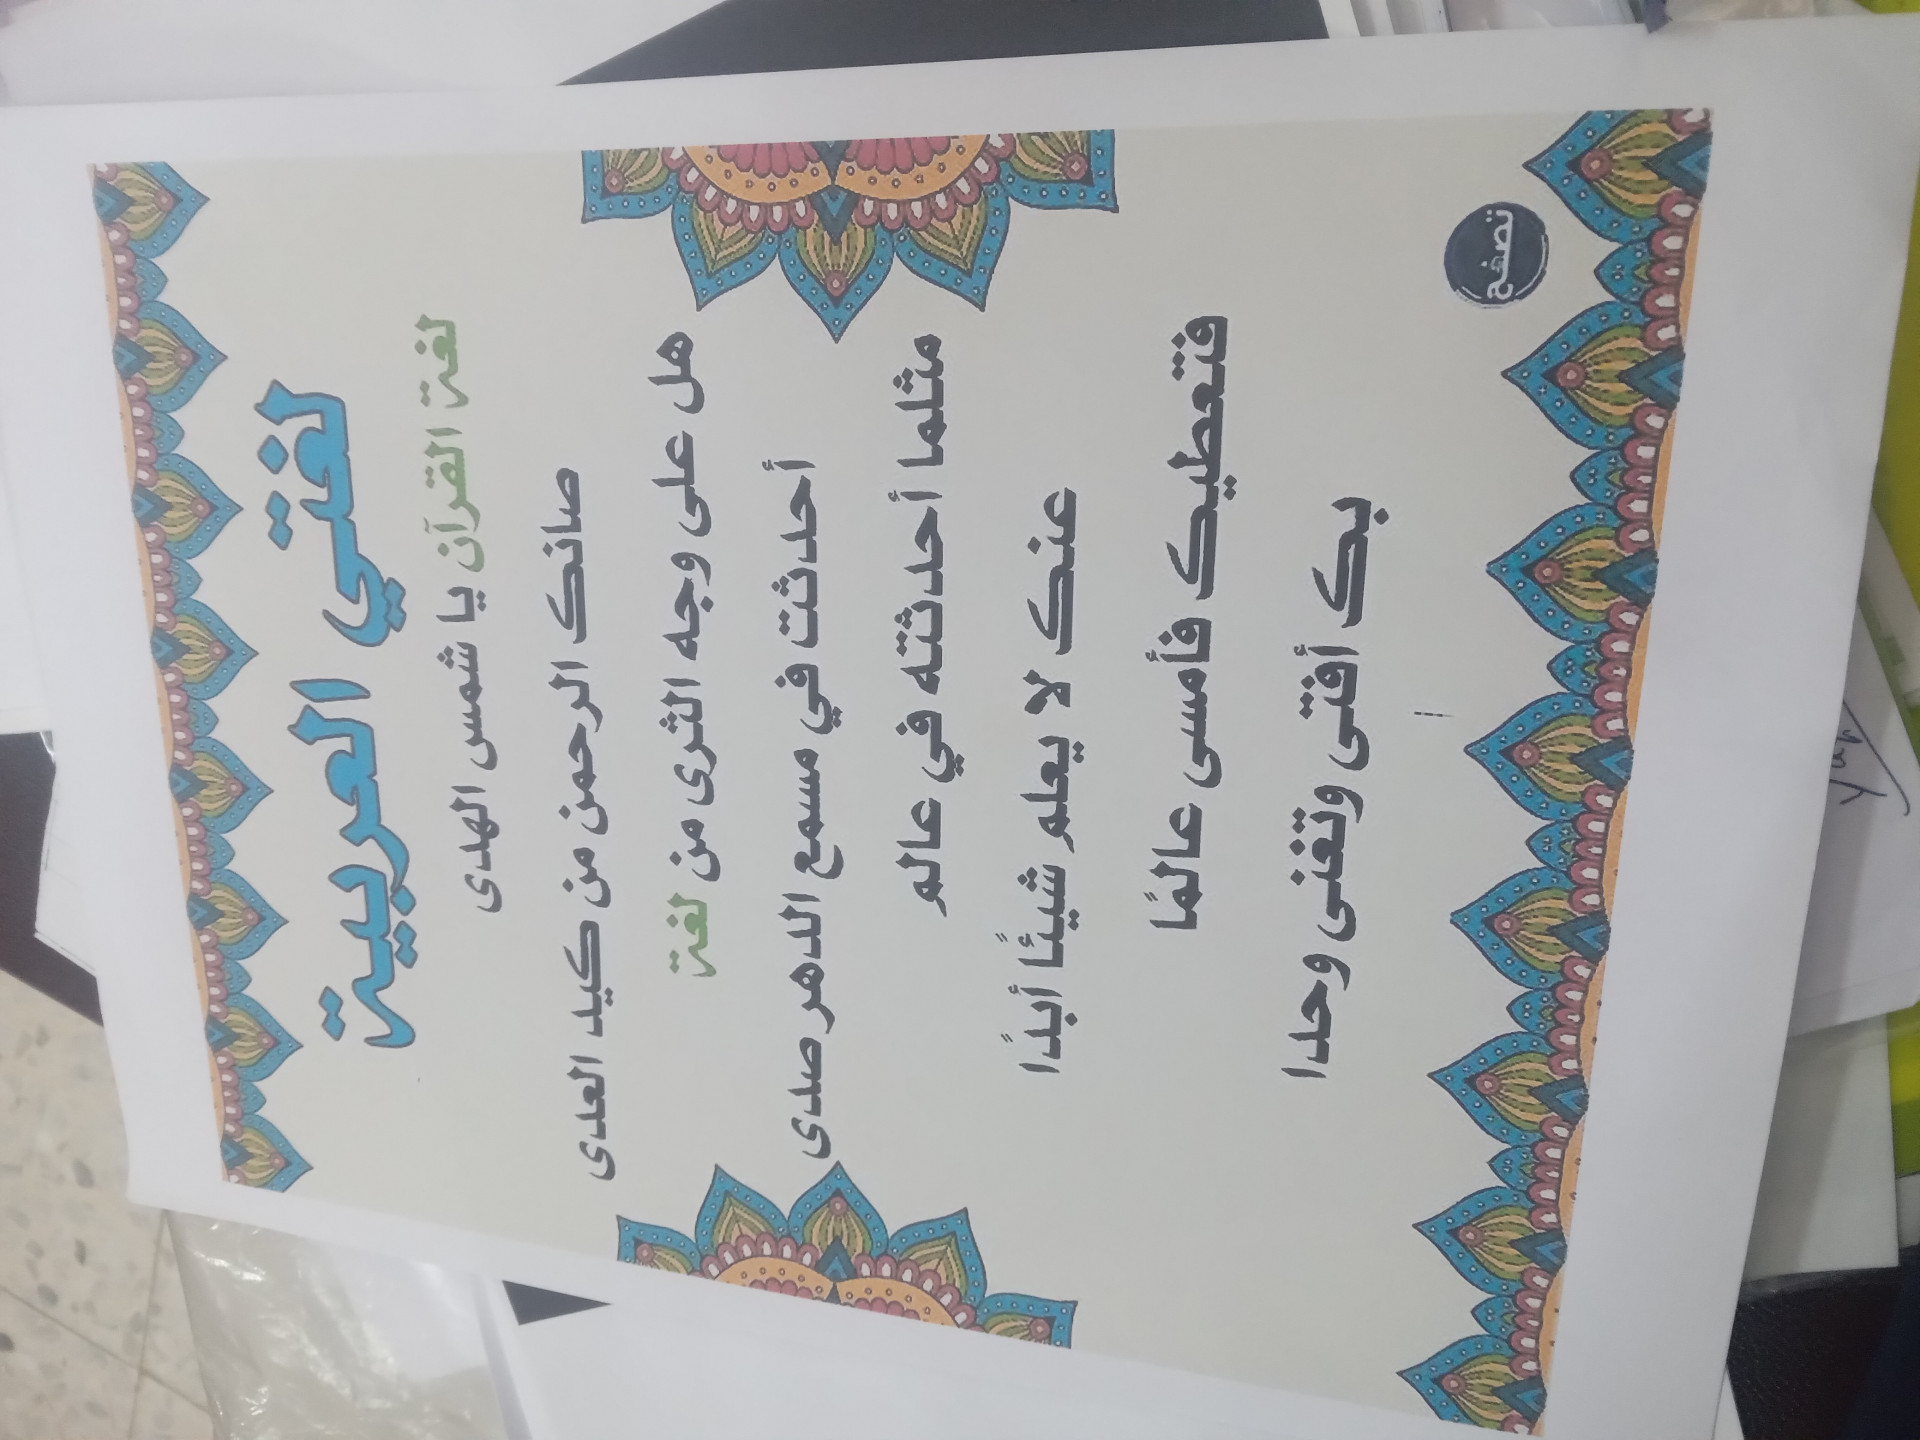 لغتي العربية
لغة القرآن يا شمس الهدى
صانك الرحمن من كيد العدى
هل على وجه الثرى من لغة
أحدثت في مسمع الدهر صدى
مثلما أحدثته في عالم
عنك لا يعلم شيئًا أبدًا
فتعطيك فأمسى عالمًا
بك أفتى وتغنى وحدا
تصفح